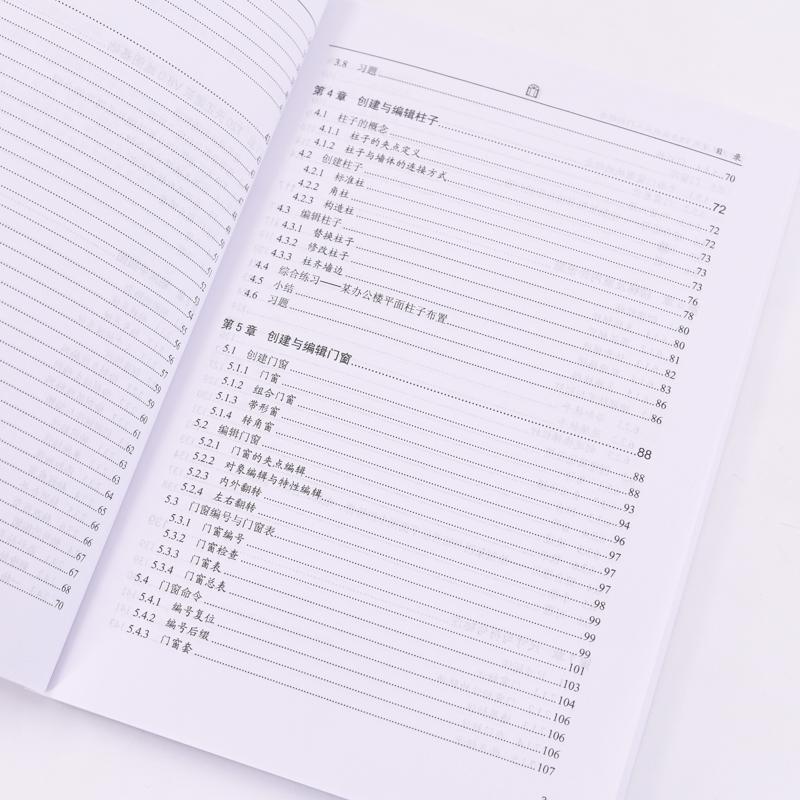 59
59
60
61
62
63
63
64
65
66
66
67
67
68
70
目 录
3.8 习题 70
第4章 创建与编辑柱子 72
4.1 柱子的概念 72
4.1.1 柱子的夹点定义 72
4.1.2 柱子与墙体的连接方式 73
4.2 创建柱子 73
4.2.1 标准柱 73
4.2.2 角柱 76
4.2.3 构造柱 78
4.3 编辑柱子 80
4.3.1 替换柱子 80
4.3.2 修改柱子 81
4.3.3 柱齐墙边 82
4.4 综合练习——某办公楼平面柱子布置 83
4.5 小结 86
4.6 习题 86
第5章 创建与编辑门窗 88
5.1 创建门窗 88
5.1.1 门窗 88
5.1.2 组合门窗 93
5.1.3 带形窗 94
5.1.4 转角窗 96
5.2 编辑门窗 97
5.2.1 门窗的夹点编辑 97
5.2.2 对象编辑与特性编辑 97
5.2.3 内外翻转 98
5.2.4 左右翻转 99
5.3 门窗编号与门窗表 99
5.3.1 门窗编号 99
5.3.2 门窗检查 101
5.3.3 门窗表 103
5.3.4 门窗总表 104
5.4 门窗命令 106
5.4.1 编号复位 106
5.4.2 编号后缀 106
5.4.3 门窗套 107